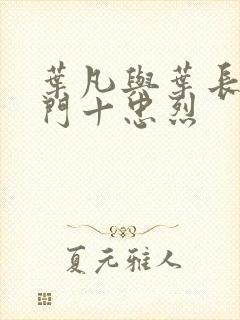 葉凡與葉長
門十忠烈
夏元雅人